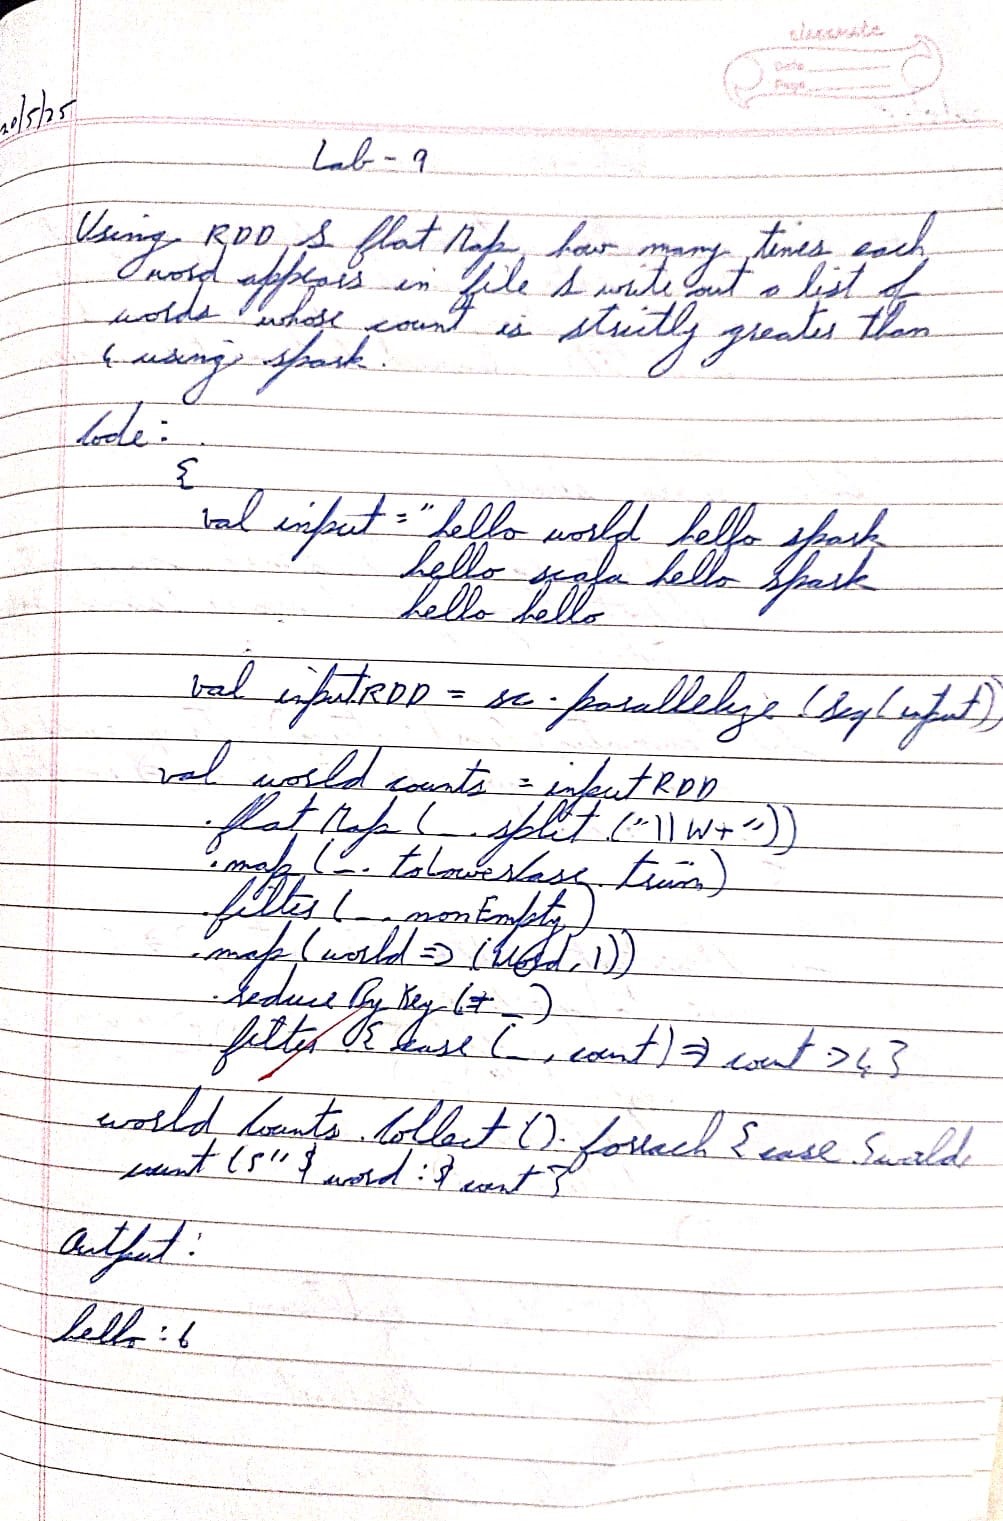 classmate
Date
Page
20/5/25
Lab - 9
Using RDD & flat Map how many times each
word appears in file & write out a list of
words whose count is strictly greater than
4 using spark.
Code :
{
val input = "hello world hello spark
hello scala hello spark
hello hello
val inputRDD = sc . parallelize (Seq (input))
val world counts = input RDD
. flat Map ( _ . split ("\\W+"))
. map ( _ . toLowerCase . trim)
. filter ( _ . nonEmpty)
. map (world => (word, 1))
. reduce By Key (+ _ )
filter { case ( _ , count) => count > 4 }
world Counts . Collect () . foreach { case
count (s" $ word : $ count }
Output :
hello : 6